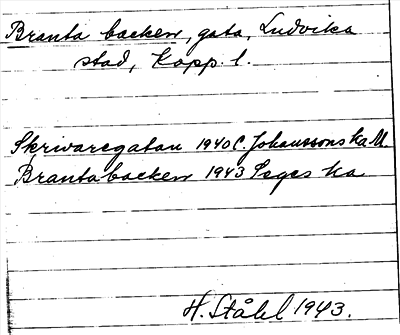 Branta backen, gata, Ludvika
stad, Kopp. l.
Skrivaregatan 1940 C. Johanssons ka M.
Brantabacken 1943 Seges ka
H. Ståhl 1943.